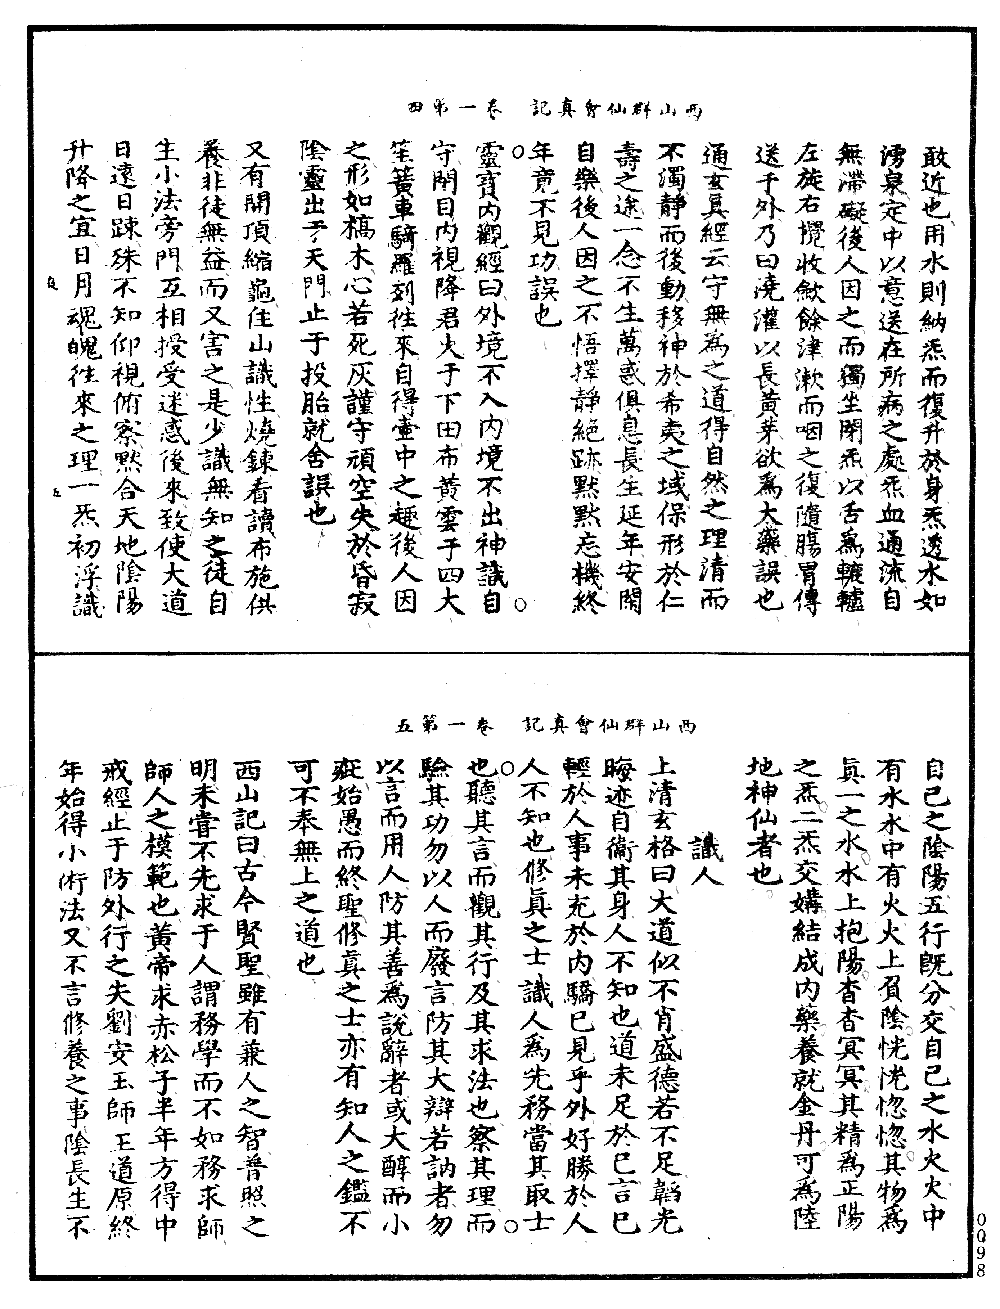 西山群仙會真記　卷一第四
敢近也用水則納炁而復升於身炁透水如
湧泉定中以意送在所病之處炁血通流自
無滯礙後人因之而獨坐閉炁以舌爲轆轤
左旋右攪收歛餘津漱而咽之復隨腸胃傳
送于外乃曰澆灌以長黃芽欲爲大藥誤也
通玄眞經云守無爲之道得自然之理清而
不濁靜而後動移神於希夷之域保形於仁
壽之途一念不生萬惑俱息長生延年安閑
自樂後人因之不悟擇靜絕跡默默忘機終
年竟不見功誤也
靈寶內觀經曰外境不入內境不出神識自
守閉目內視降君火于下田布黃雲于四大
笙簧車騎羅列往來自得壷中之趣後人因
之形如槁木心若死灰謹守頑空失於昏寂
陰靈出于天門止于投胎就舍誤也
又有開頂縮龜住山識性燒鍊看讀布施供
養非徒無益而又害之是少識無知之徒自
生小法旁門互相授受迷惑後來致使大道
日遠日踈殊不知仰視俯察黙合天地陰陽
升降之宜日月魂魄往來之理一炁初浮識
西山群仙會真記　卷一第五
自己之陰陽五行旣分交自己之水火火中
有水水中有火火上負陰恍恍惚惚其物爲
眞一之水水上抱陽杳杳冥冥其精爲正陽
之炁二炁交媾結成內藥養就金丹可爲陸
地神仙者也
識人
上清玄格曰大道似不肖盛德若不足韜光
晦迹自衞其身人不知也道未足於已言已
輕於人事未充於內驕已見乎外好勝於人
人不知也修眞之士識人爲先務當其取士
也聽其言而觀其行及其求法也察其理而
驗其功勿以人而廢言防其大辯若訥者勿
以言而用人防其善爲說辭者或大醇而小
疵始愚而終聖修真之士亦有知人之鑑不
可不奉無上之道也
西山記曰古今賢聖雖有兼人之智普照之
明未甞不先求于人謂務學而不如務求師
師人之模範也黃帝求赤松子半年方得中
戒經止于防外行之失劉安王師王道原終
年始得小術法又不言修養之事陰長生不
0098